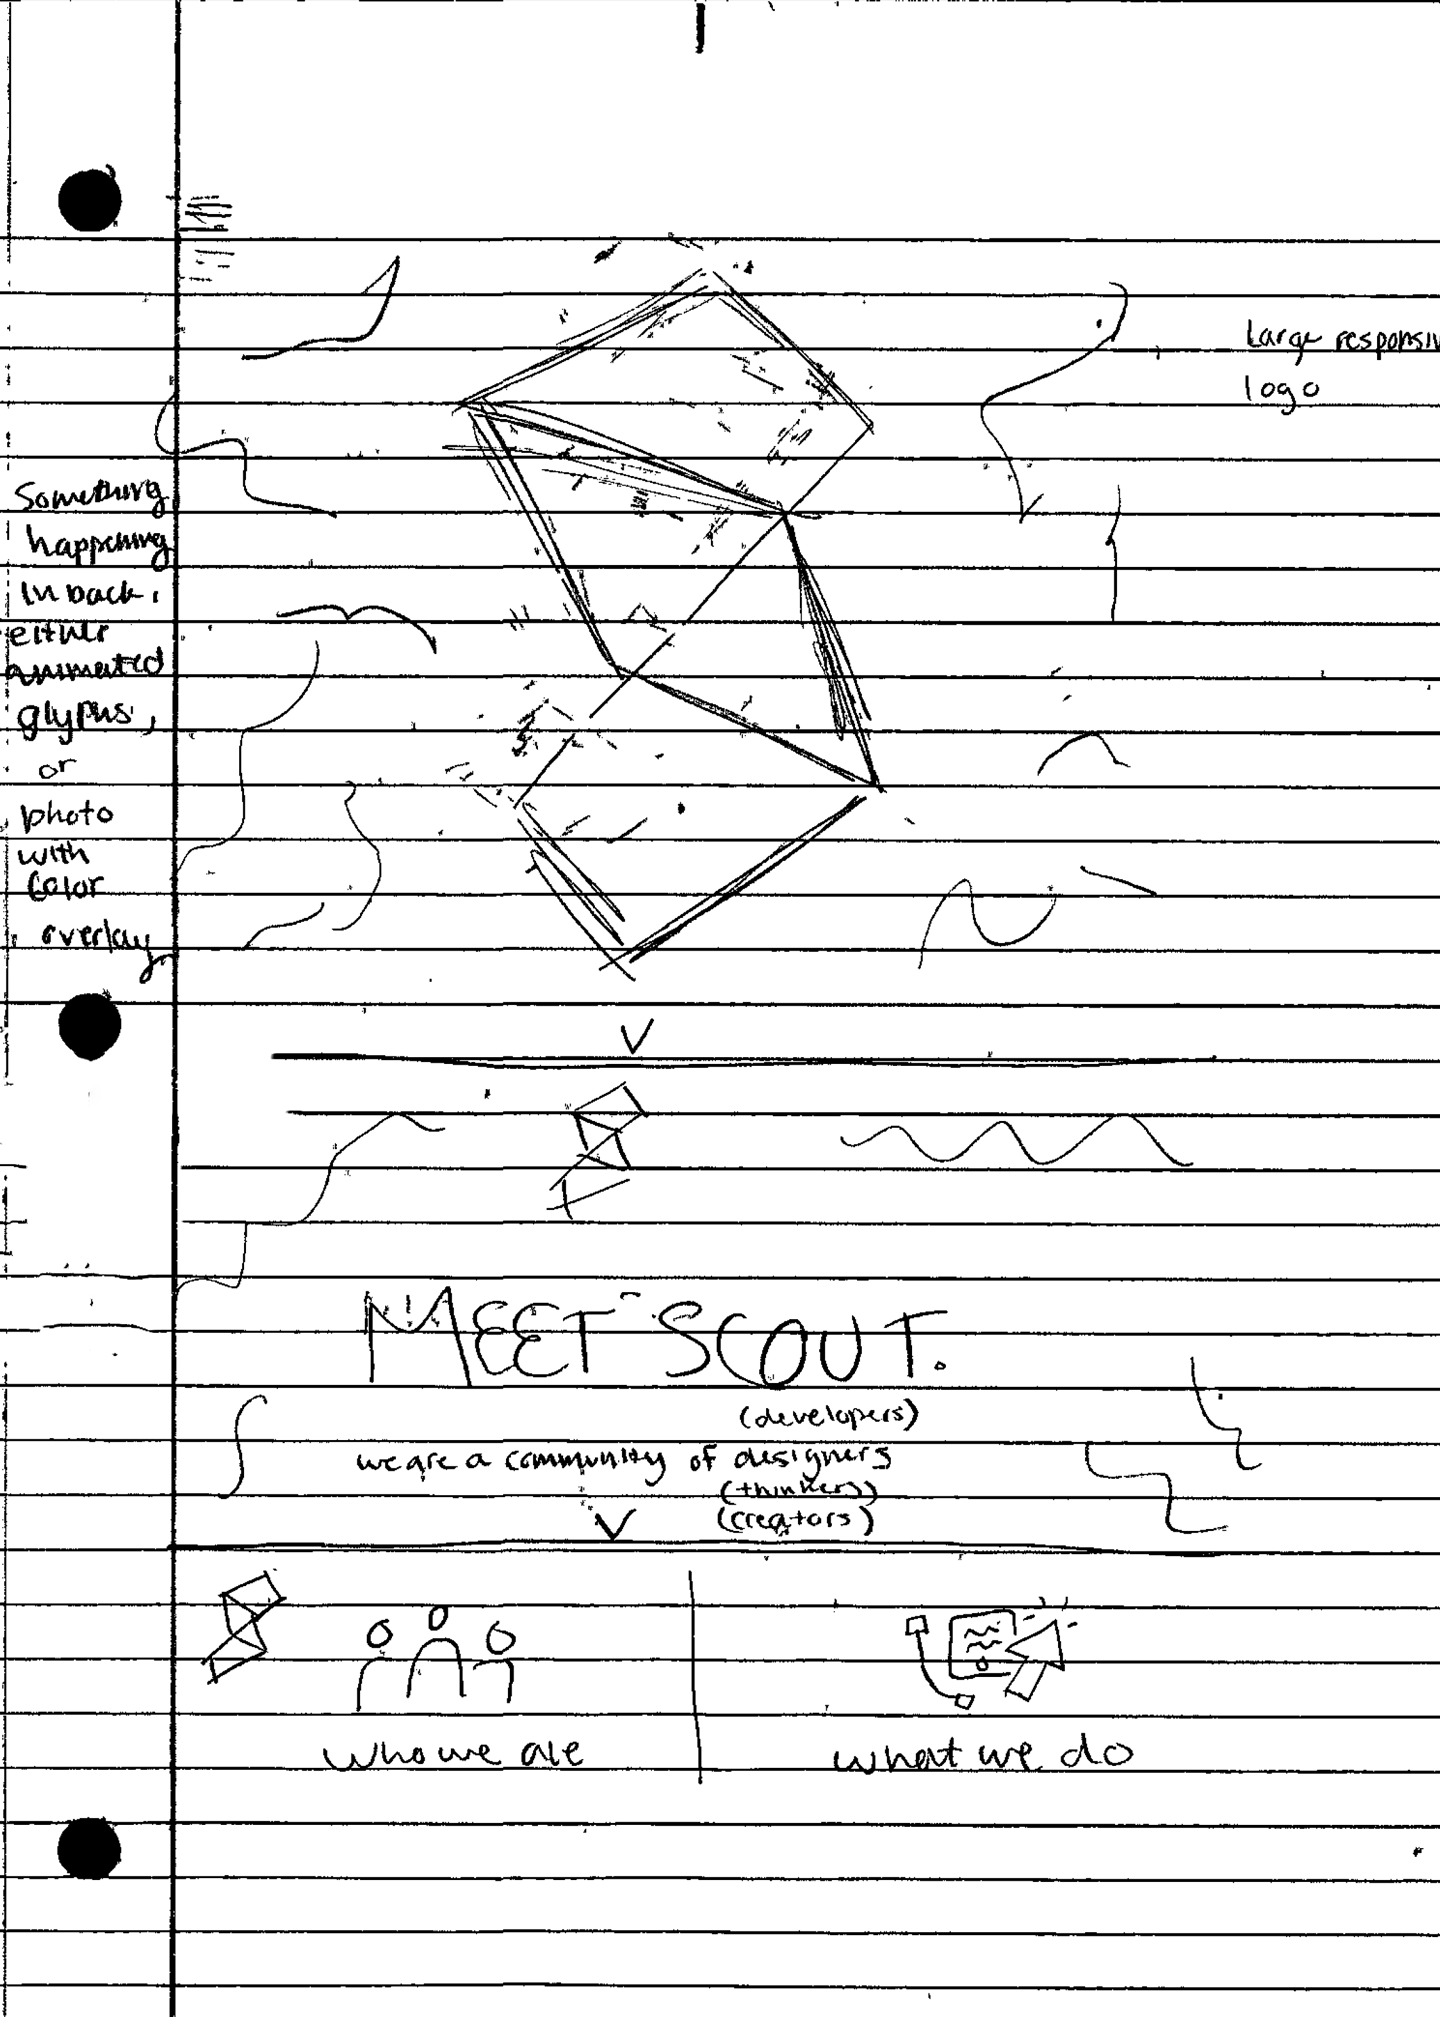 Large responsiv
logo
Something
happening
in back,
either
animated
glyphs,
or
photo
with
color
overlay
MEET SCOUT.
(developers)
we are a community of designers
(thinkers)
(creators)
who we are
what we do